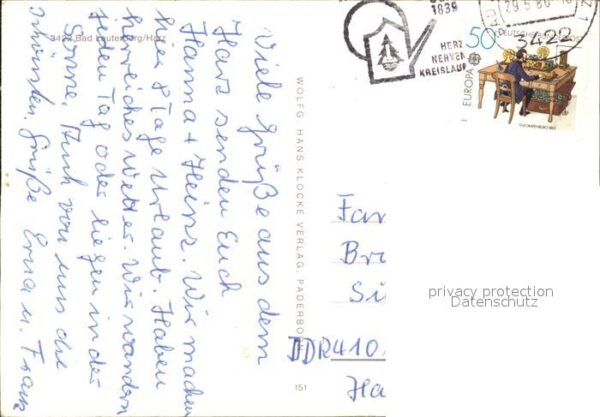 3422 Bad Lauterberg/Harz
Viele Grüße aus dem
Harz senden Euch
Hanna + Heinz. Wir machen
hier 8 Tage Urlaub. Haben
herrliches Wetter. Wir wandern
jeden Tag oder liegen in der
Sonne. Auch von uns die
schönsten Grüße Erna u. Frank
WOLFG. HANS KLOCKE VERLAG, PADERBORN
151
1839
HERZ
NERVEN
KREISLAUF
29.5.80
3422
50
DEUTSCHE BUNDESPOST
EUROPA
Fam
Br
Si
DDR 410
Ha
privacy protection
Datenschutz